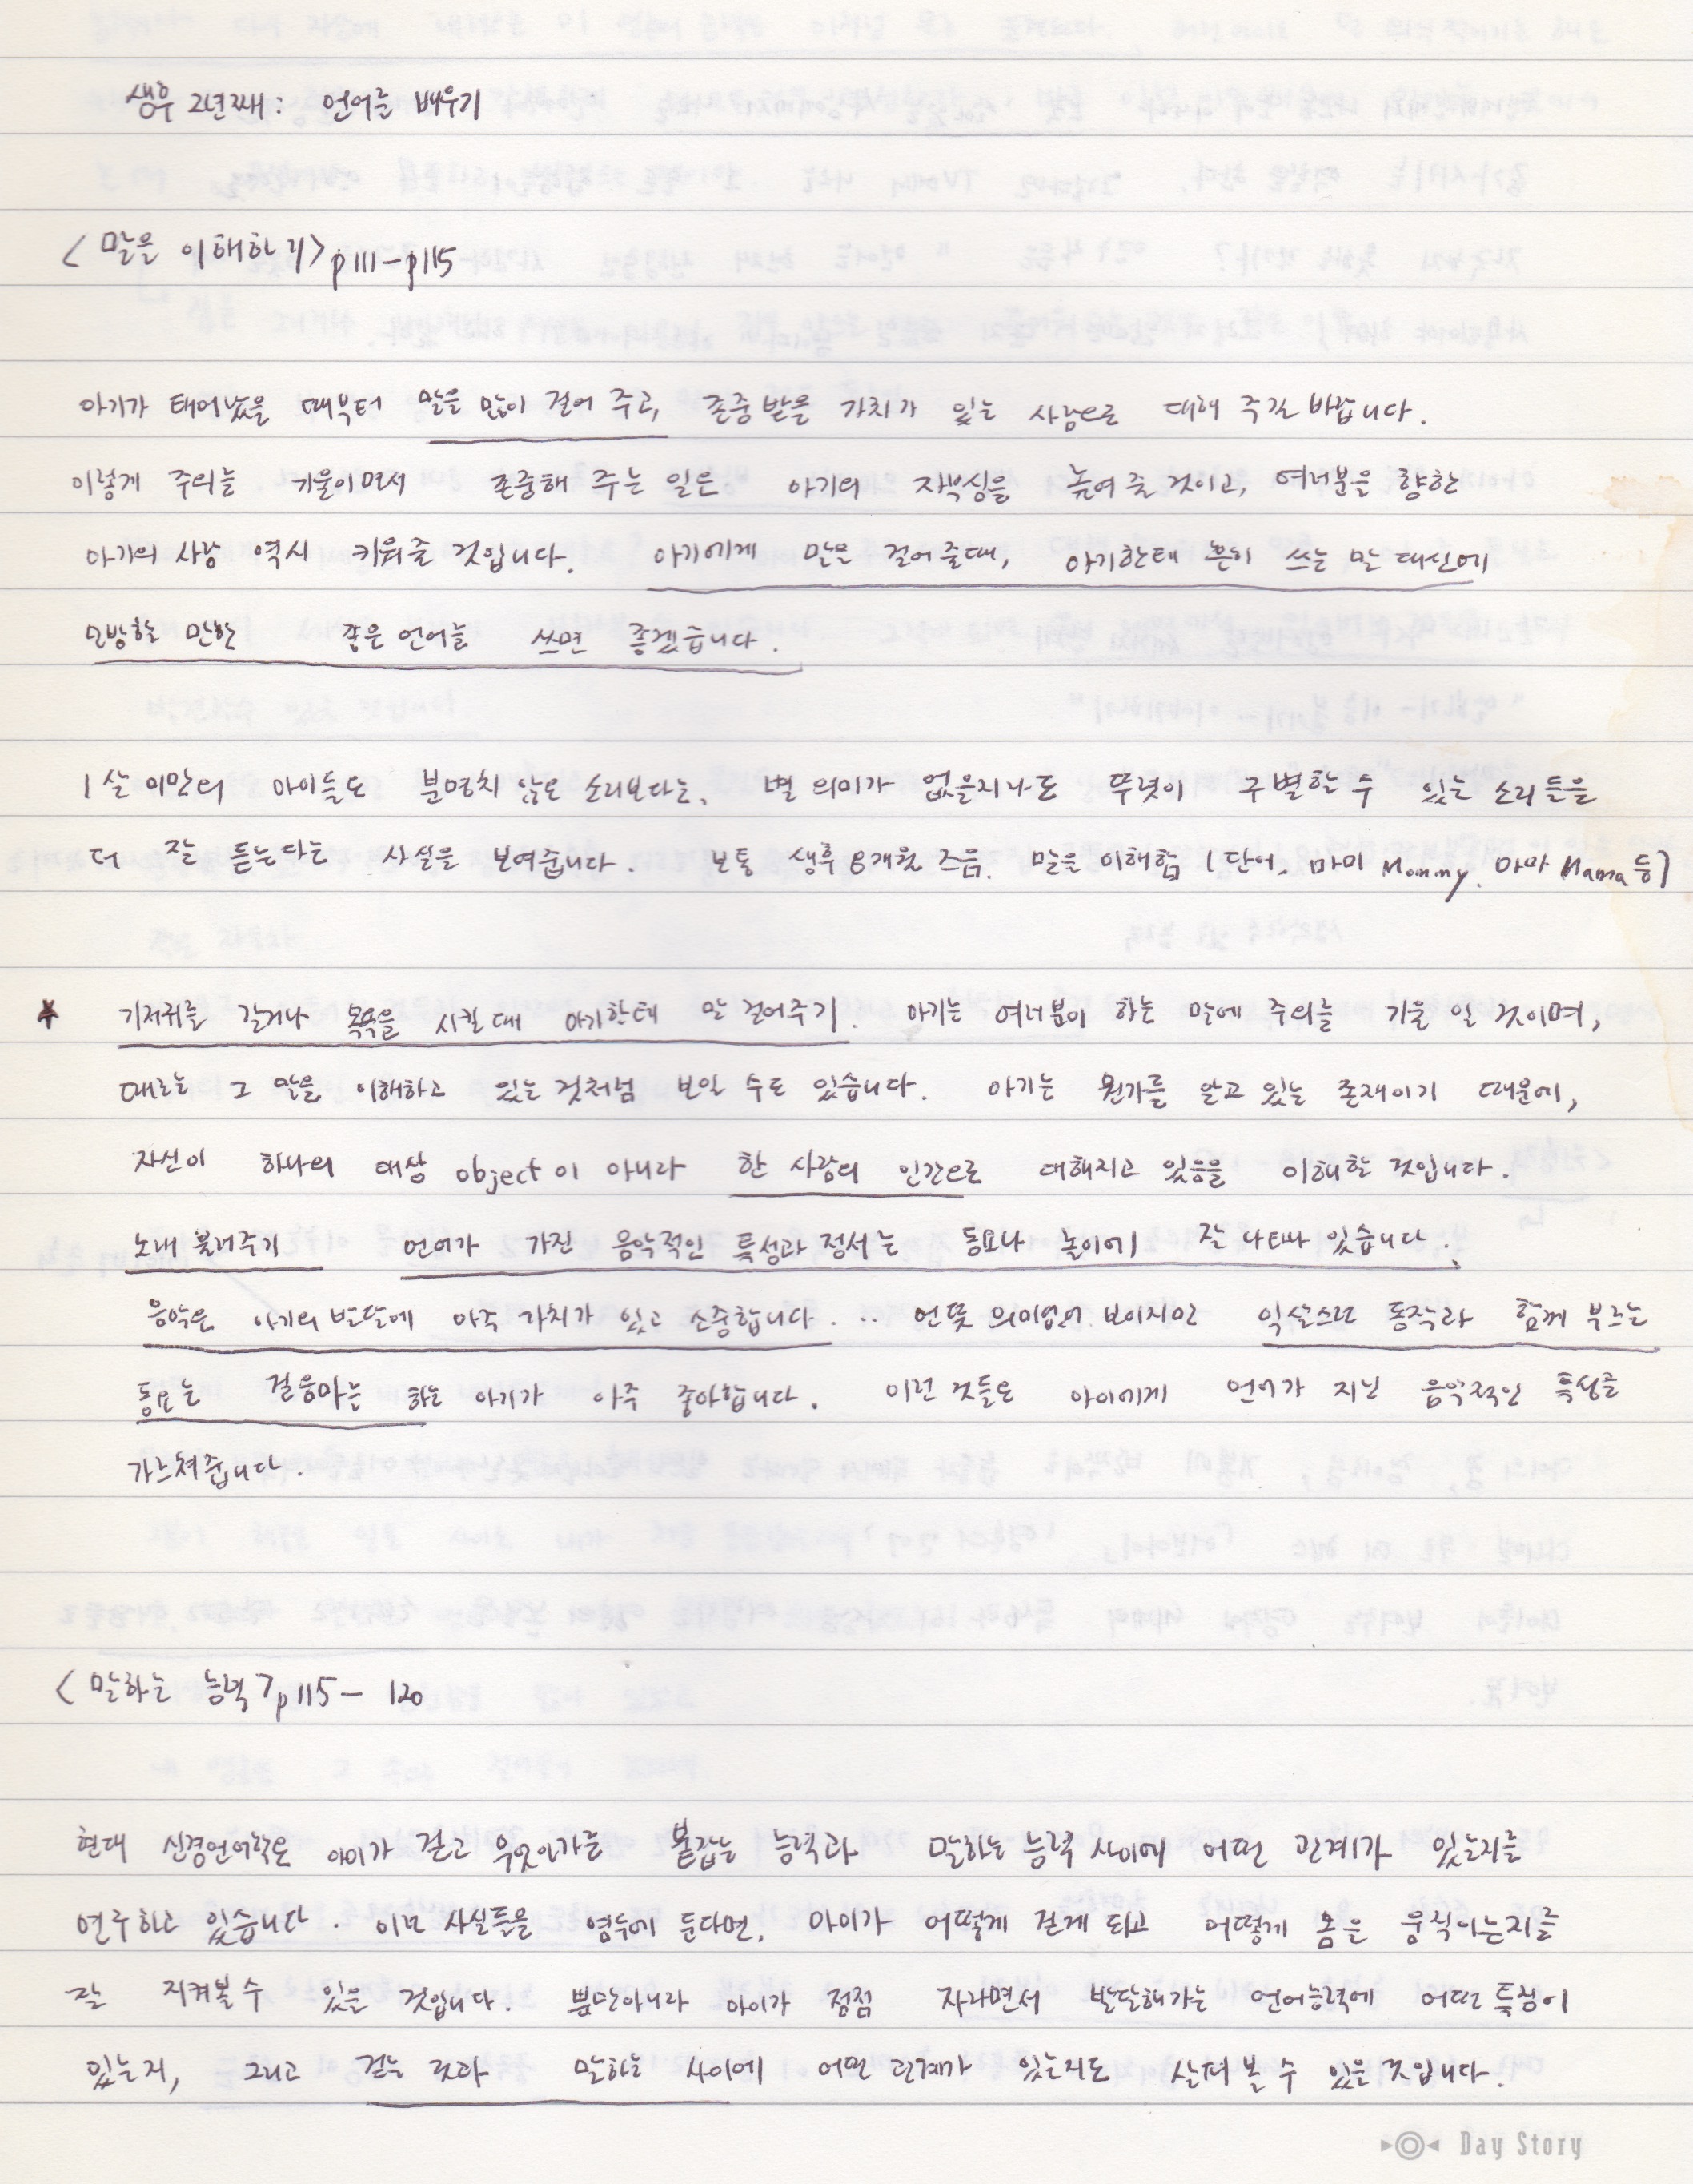 생후 2년째: 언어를 배우기
<말을 이해하기> p111-p115
아기가 태어났을 때부터 말을 많이 걸어 주고, 존중 받을 가치가 있는 사람으로 대해 주길 바랍니다.
이렇게 주의를 기울이면서 존중해 주는 일은 아기의 자부심을 높여 줄 것이고, 여러분을 향한
아기의 사랑 역시 키워줄 것입니다. 아기에게 말을 걸어줄때, 아기한테 흔히 쓰는 말 대신에
모방할 만한 좋은 언어를 쓰면 좋겠습니다.
1살 미만의 아이들도 분명치 않은 소리보다는, 별 의미가 없을지라도 뚜렷이 구별할 수 있는 소리들을
더 잘 듣는다는 사실을 보여줍니다. 보통 생후 8개월 즈음. 말을 이해함 (단어, 마미 Mommy, 마마 Mama 등)
* 기저귀를 갈거나 목욕을 시킬 때 아기한테 말 걸어주기. 아기는 여러분이 하는 말에 주의를 기울 일 것이며,
때로는 그 말을 이해하고 있는 것처럼 보일 수도 있습니다. 아기는 뭔가를 알고 있는 존재이기 때문에,
자신이 하나의 대상 object이 아니라 한 사람의 인간으로 대해지고 있음을 이해할 것입니다.
노래 불러주기 언어가 가진 음악적인 특성과 정서는 동요나 놀이에 잘 나타나 있습니다.
음악은 아기의 발달에 아주 가치가 있고 소중합니다. .. 언뜻 의미없어 보이지만 익살스런 동작과 함께 부르는
동요는 걸음마는 하는 아기가 아주 좋아합니다. 이런 것들은 아이에게 언어가 지닌 음악적인 특성을
가르쳐줍니다.
<말하는 능력> p115- 120
현대 신경언어학은 아이가 걷고 무엇인가를 붙잡는 능력과 말하는 능력 사이에 어떤 관계가 있는지를
연구하고 있습니다. 이런 사실들을 염두에 둔다면, 아이가 어떻게 걷게 되고 어떻게 몸을 움직이는지를
잘 지켜볼 수 있을 것입니다. 뿐만아니라 아이가 점점 자라면서 발달해가는 언어능력에 어떤 특징이
있는지, 그리고 걷는 것과 말하는 사이에 어떤 관계가 있는지도 살펴 볼 수 있을 것입니다.
Day Story